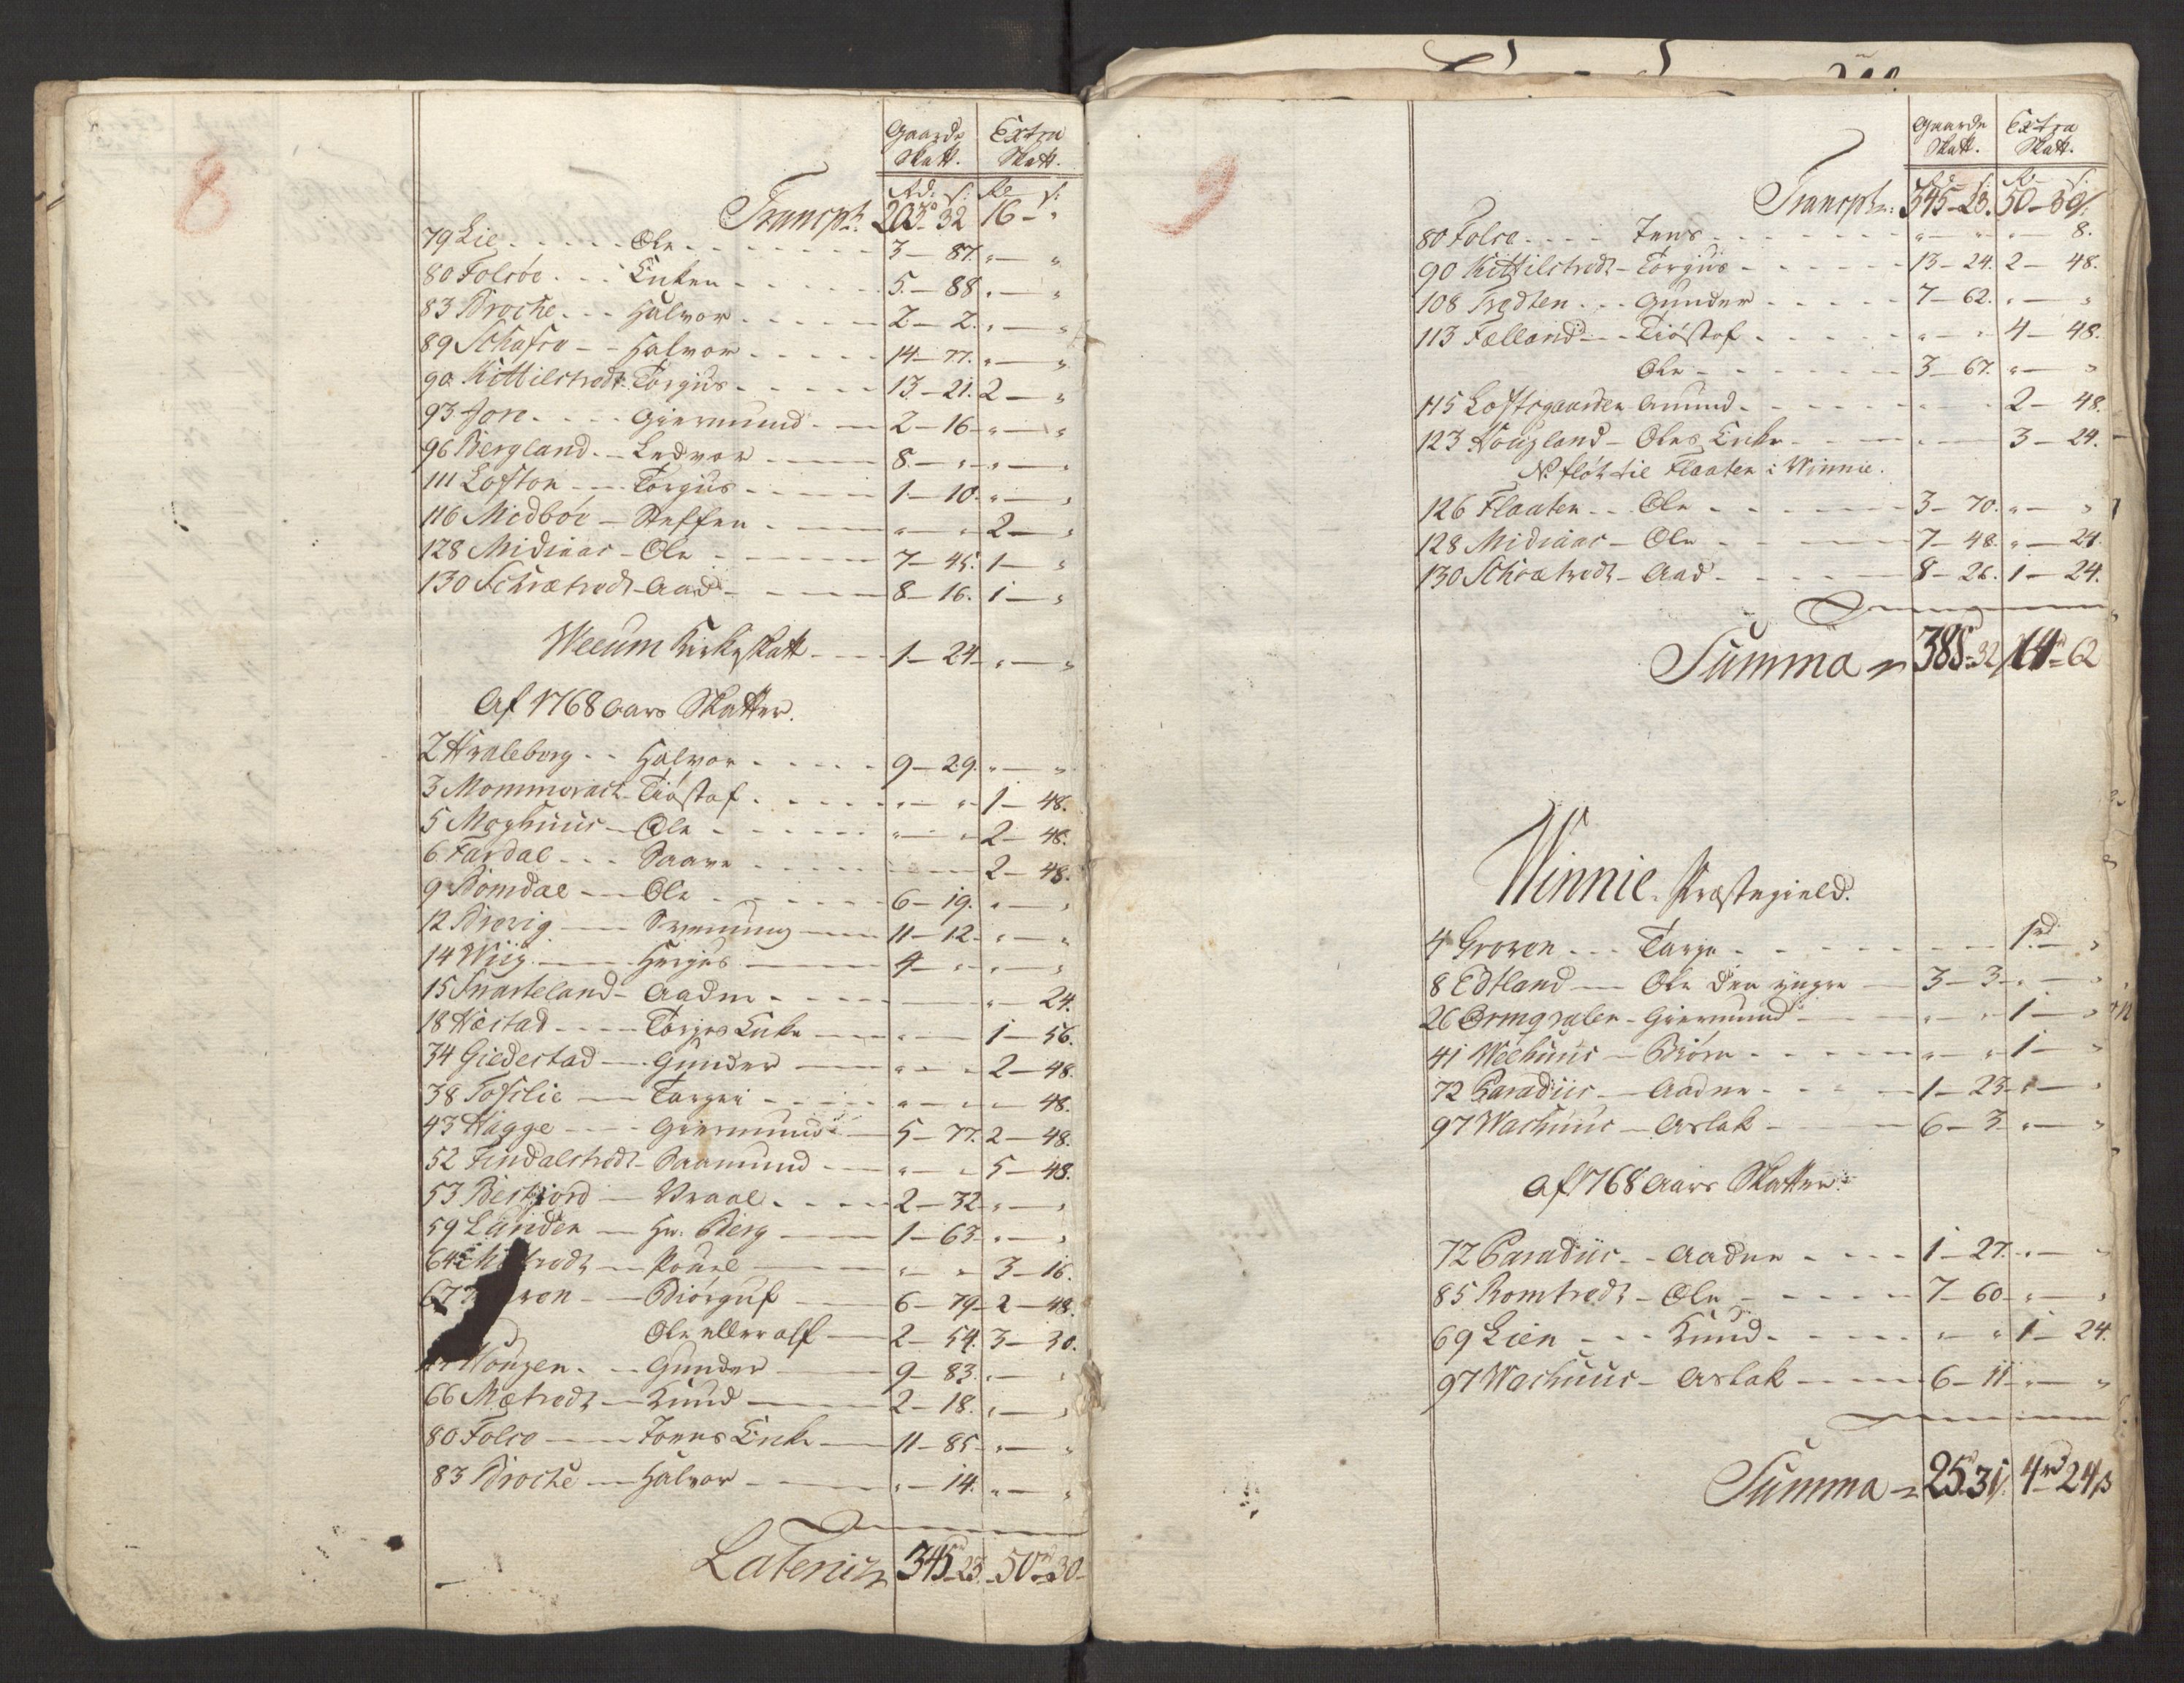 8
Gaarde Extra
Skatt. Skatt.
Rd. s: Rd s:
Transpt. 203 - 32 16 - "
79 Lie - Ole - 3 - 87. " - "
80 Folsöe - Enken - 5 - 88 " - "
83 Broche - Halvor - 2 - 2. " - "
89 Schafsa - Halvor - 14 - 77. " - "
90 Kittilstredt - Torgus - 13 - 21. 2 - "
93 Jore - Giermund - 2 - 16 - " - "
96 Bergland - Ledvor - 8 - " - " - "
111 Lofton - Torgus - 1 - 10. " - "
116 Midböe - Steffen - " - " 2 - "
128 Midiaas - Ole - 7 - 45. 1 - "
130 Schrætredt - Aad - 8 - 16. 1 - "
Weeum Kirkeskatt - 1 - 24 - " - "
Af 1768 aars Skatter.
2 Hvaleborg - Halvor - 9 - 29. " - "
3 Mommerach - Tiöstof - " - " 1 - 48.
5 Moghuus - Ole - " - " 2 - 48.
6 Fardal - Saave - 2 - 48.
9 Bomdal - Ole - 6 - 19. " - "
12 Brovig - Svennung - 11 - 12 - " - "
14 Wiig - Hergus - 4 - " " - "
15 Svarteland - Aadne - " - 24.
18 Hæstad - Torjes Enke - " - 1 - 56.
34 Giedestad - Gunder - " - " 2 - 48.
38 Fosslie - Targei - " - " - 48.
43 Hagge - Giermund - 5 - 77. 2 - 48.
52 Findalstredt - Saamund - " - " 5 - 48.
53 Besfiord - Vraal - 2 - 32 - " - "
59 Landen - Hr. Berg - 1 - 63 - " - "
64 tredt - Povel - " - " 3 - 16.
67 ron - Biörguf - 6 - 79 - 2 - 48.
Ole eller alf - 2 - 54. 3 - 30.
Nougen - Gunder - 9 - 83. " - "
66 Mætredt - Knud - 2 - 18. " - "
80 Folso - Joens Enke - 11 - 85 - " - "
83 Broche - Halvor - " - 14. " - "
Lateris 345 - 23. 50 - 30 -
9
Gaarde Extra
Skatt. Skatt.
Rd s: Rd s:
Transpt: 345 - 23. 50 - 30 s.
80 Folso - Jens - " - " " - 8.
90 Kittilstredt - Torgus - 13 - 24. 2 - 48.
108 Tredten - Gunder - 7 - 62. " - "
113 Fælland - Tiöstof - " - " 4 - 48.
Ole - 3 - 67. " - "
115 Loftsgaarden - Amund - 2 - 48.
123 Hougland - Oles Enke - 3 - 24.
NB. fløt til Flaaten i Winnie.
126 Flaaten - Ole - 3 - 70. " - "
128 Midiaas - Ole - 7 - 48. " - 24.
130 Schrætredt - Aad - 8 - 26. 1 - 24.
Summa 385 - 32 64 - 62
Winnie Præstegield.
4 Groven - Targe - 1 rd - "
8 Edtland - Ole den yngre - 3 - 3 - " - "
26 Ormgralen - Giermund - " - " 1 - "
41 Weehuus - Biörn - " - " 1 - "
72 Paradiis - Aadne - 1 - 23 - " - "
97 Wachuus - Aslak - 6 - 3 - " - "
Af 1768 Aars Skatter
72 Paradiis - Aadne - 1 - 27. " - "
85 Romtredt - Ole - 7 - 60 - " - "
69 Lien - Knud - " - " 1 - 24.
97 Wachuus - Aslak - 6 - 11 - " - "
Summa 25 - 31 s. 4 rd 24 s